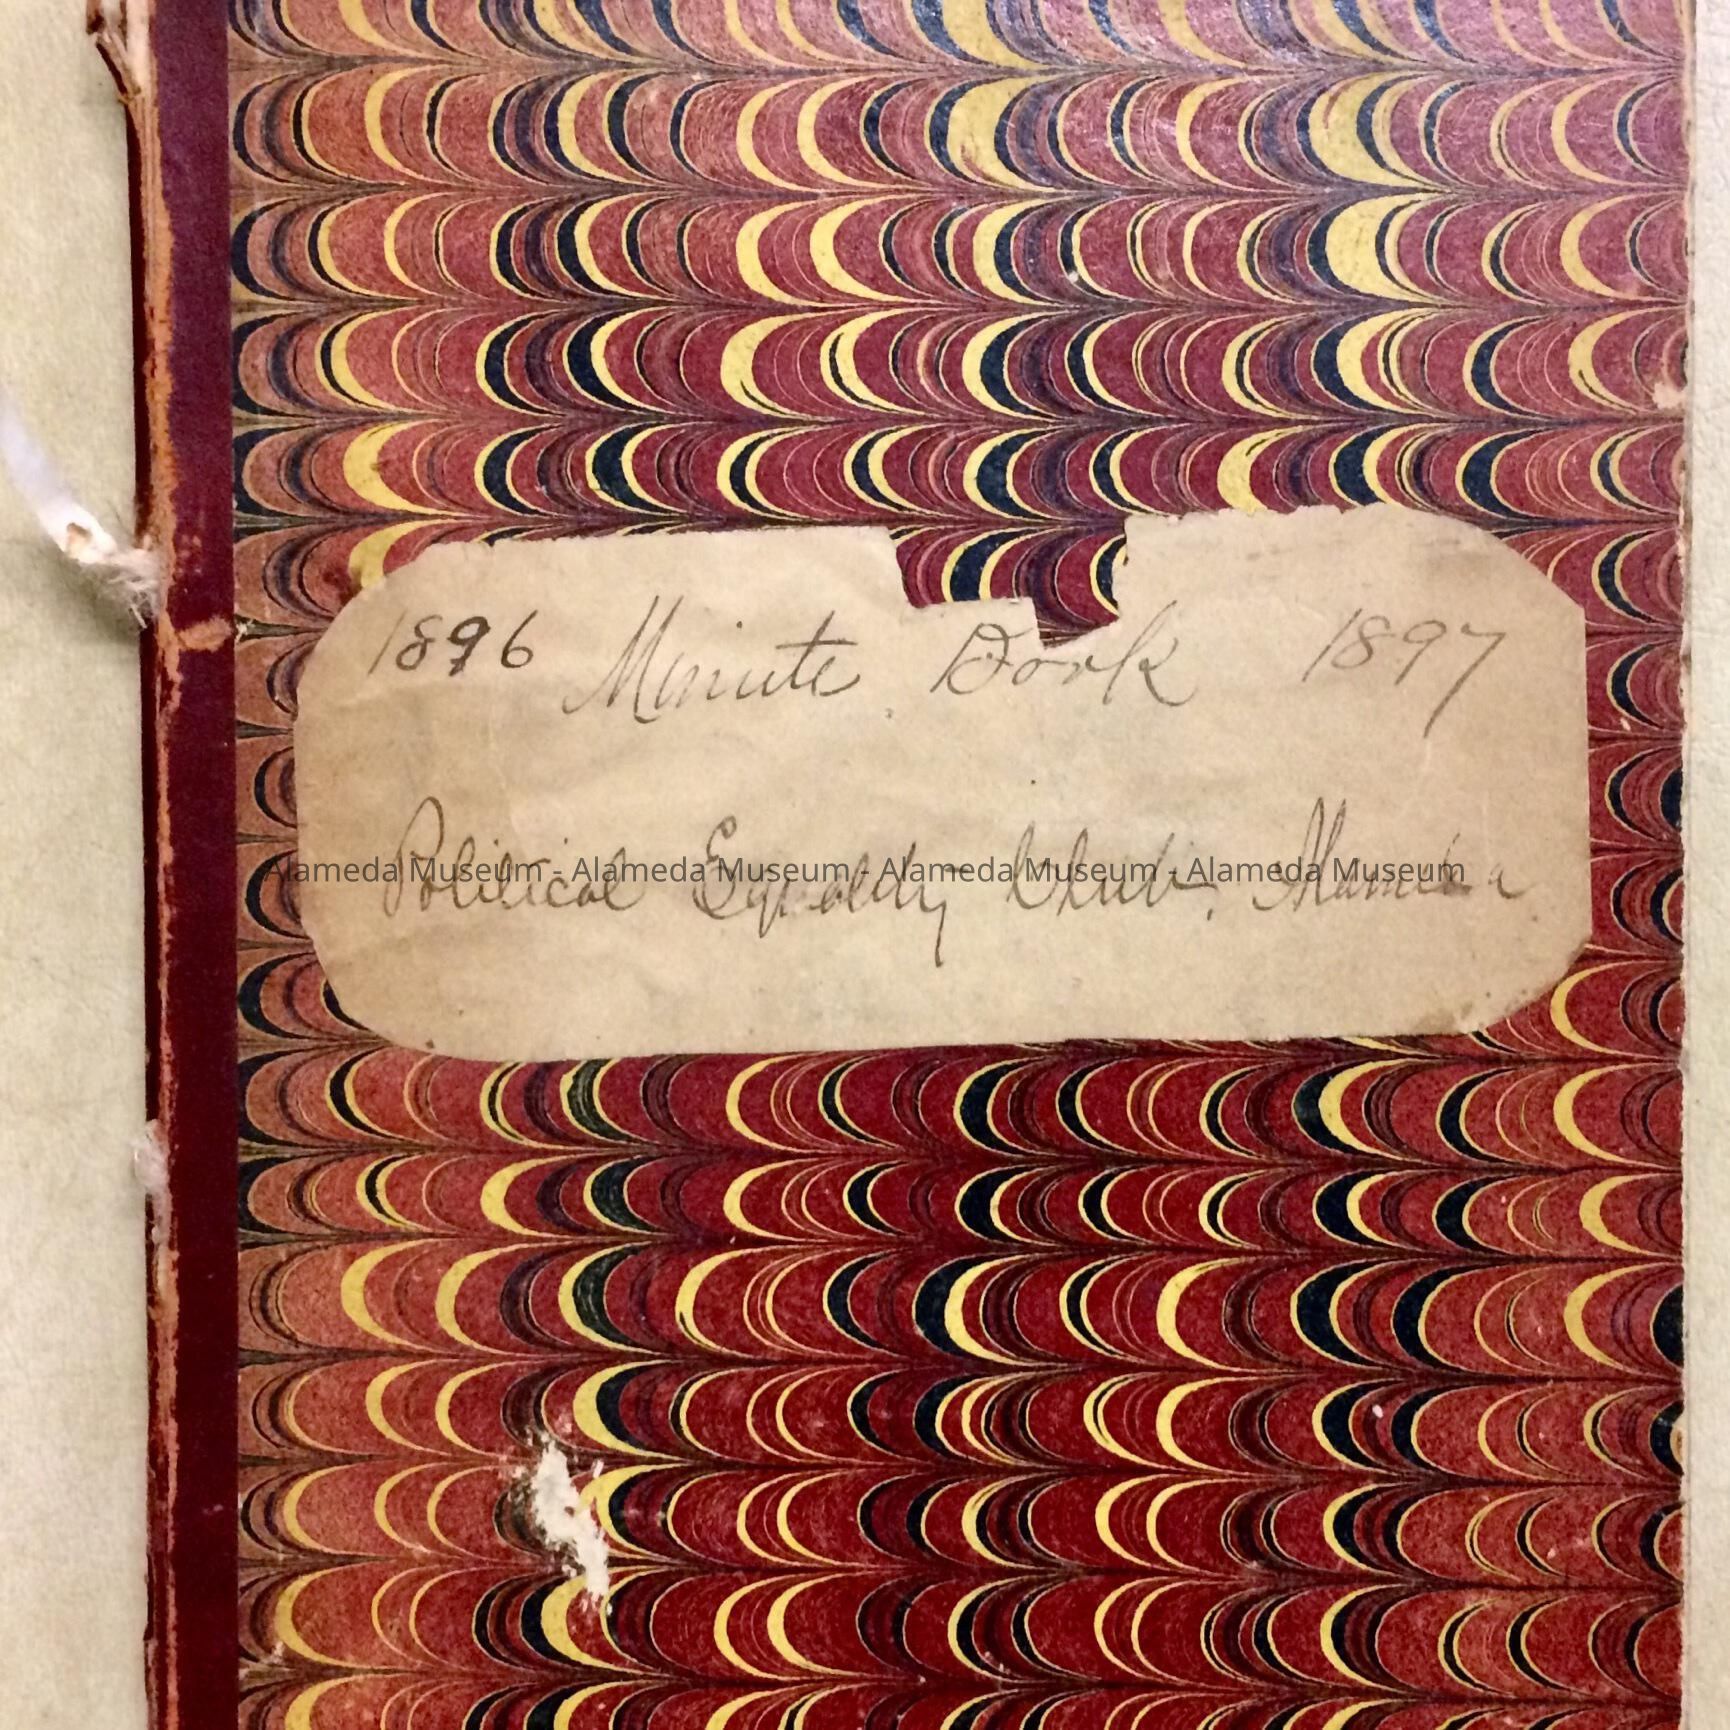 1896 Minute Book 1897
Political Equality Club. Alameda
Alameda Museum - Alameda Museum - Alameda Museum - Alameda Museum